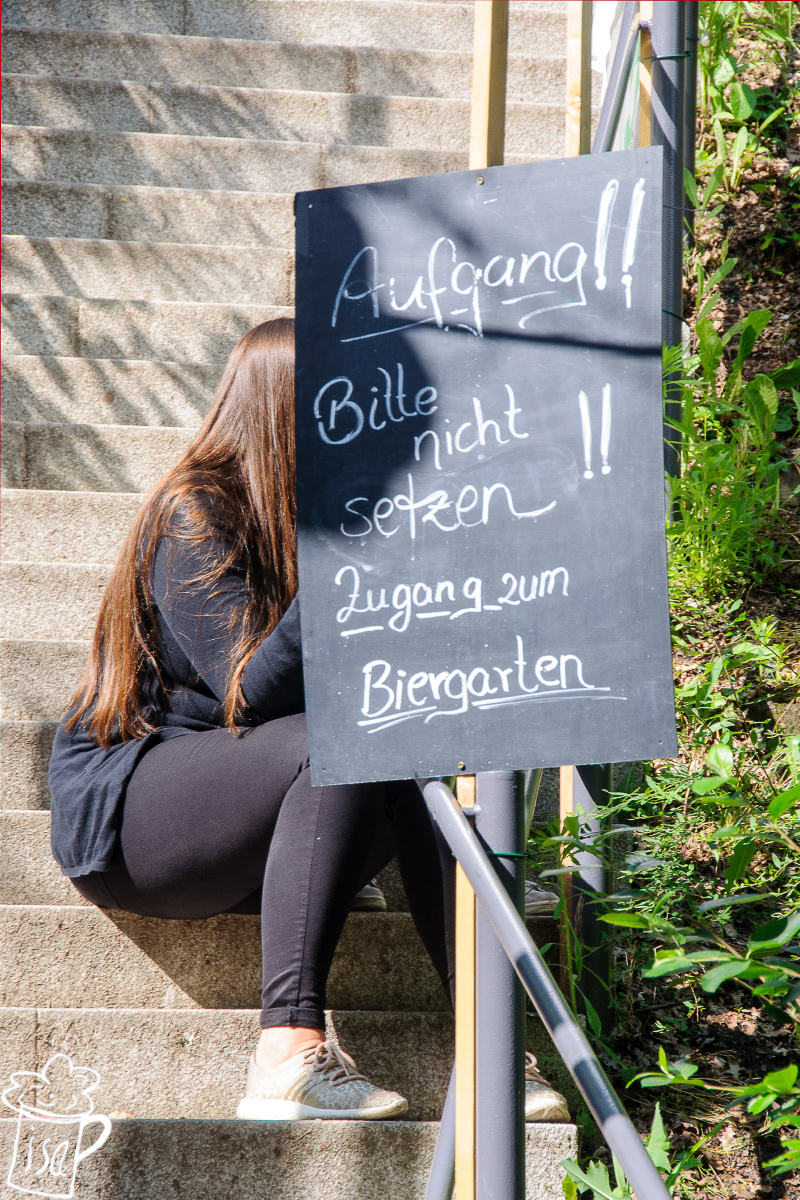 Aufgang!!
Bitte
nicht !!
setzen
Zugang zum
Biergarten
isa